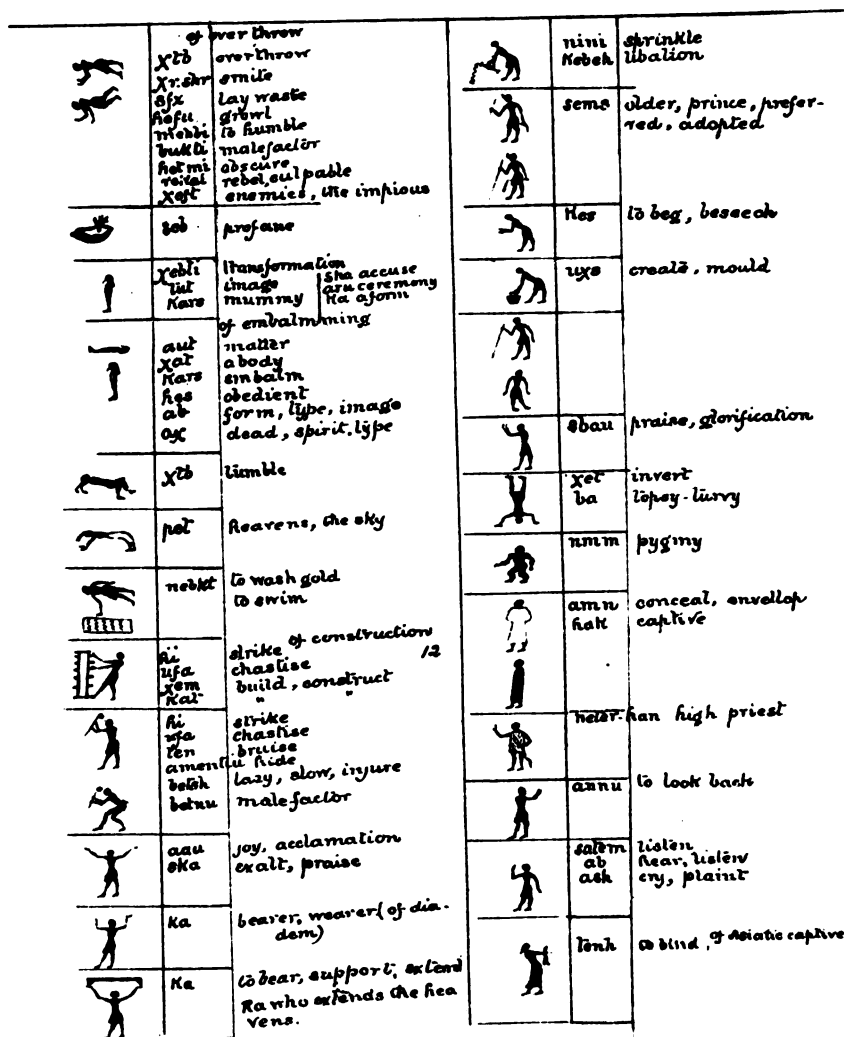 of overthrow
χtb overthrow
χr.shr smite
sfx lay waste
hofu growl
to humble
bukti malefactor
hetmi obscure
rebel, culpable
χeft enemies, the impious
seb profane
χebti transformation
tut image
Kars mummy
sha accuse
aru ceremony
Ka a form
of embalmming
aut matter
χat a body
Kars embalm
hes obedient
ab form, type, image
dead, spirit, type
χtb tumble
pet heavens, the sky
nebkt to wash gold
to swim
of construction
hi strike 12
ufa chastise
χem build, construct
Kat " "
hi strike
ufa chastise
ten bruise
amentiu hide
betsh lazy, slow, injure
betnu malefactor
aau joy, acclamation
sKa exalt, praise
Ka bearer, wearer (of dia-
dem)
Ka to bear, support, extend
Ra who extends the hea
vens.
nini sprinkle
Kebeh libation
sems older, prince, prefer-
red, adopted
Kes to beg, beseech
uχs create, mould
sbau praise, glorification
χet invert
ba topsy-turvy
nmm pygmy
amn conceal, envellop
hak captive
neter-han high priest
annu to look back
satem listen
ab hear, listen
ash cry, plaint
tenh to bind, of Asiatic captive